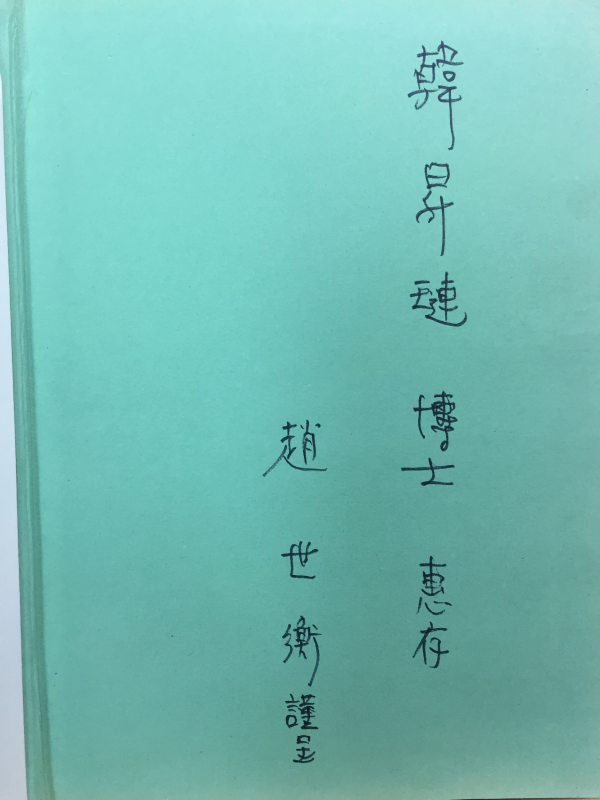 韓昇璉 博士 惠存
趙世衡 謹呈